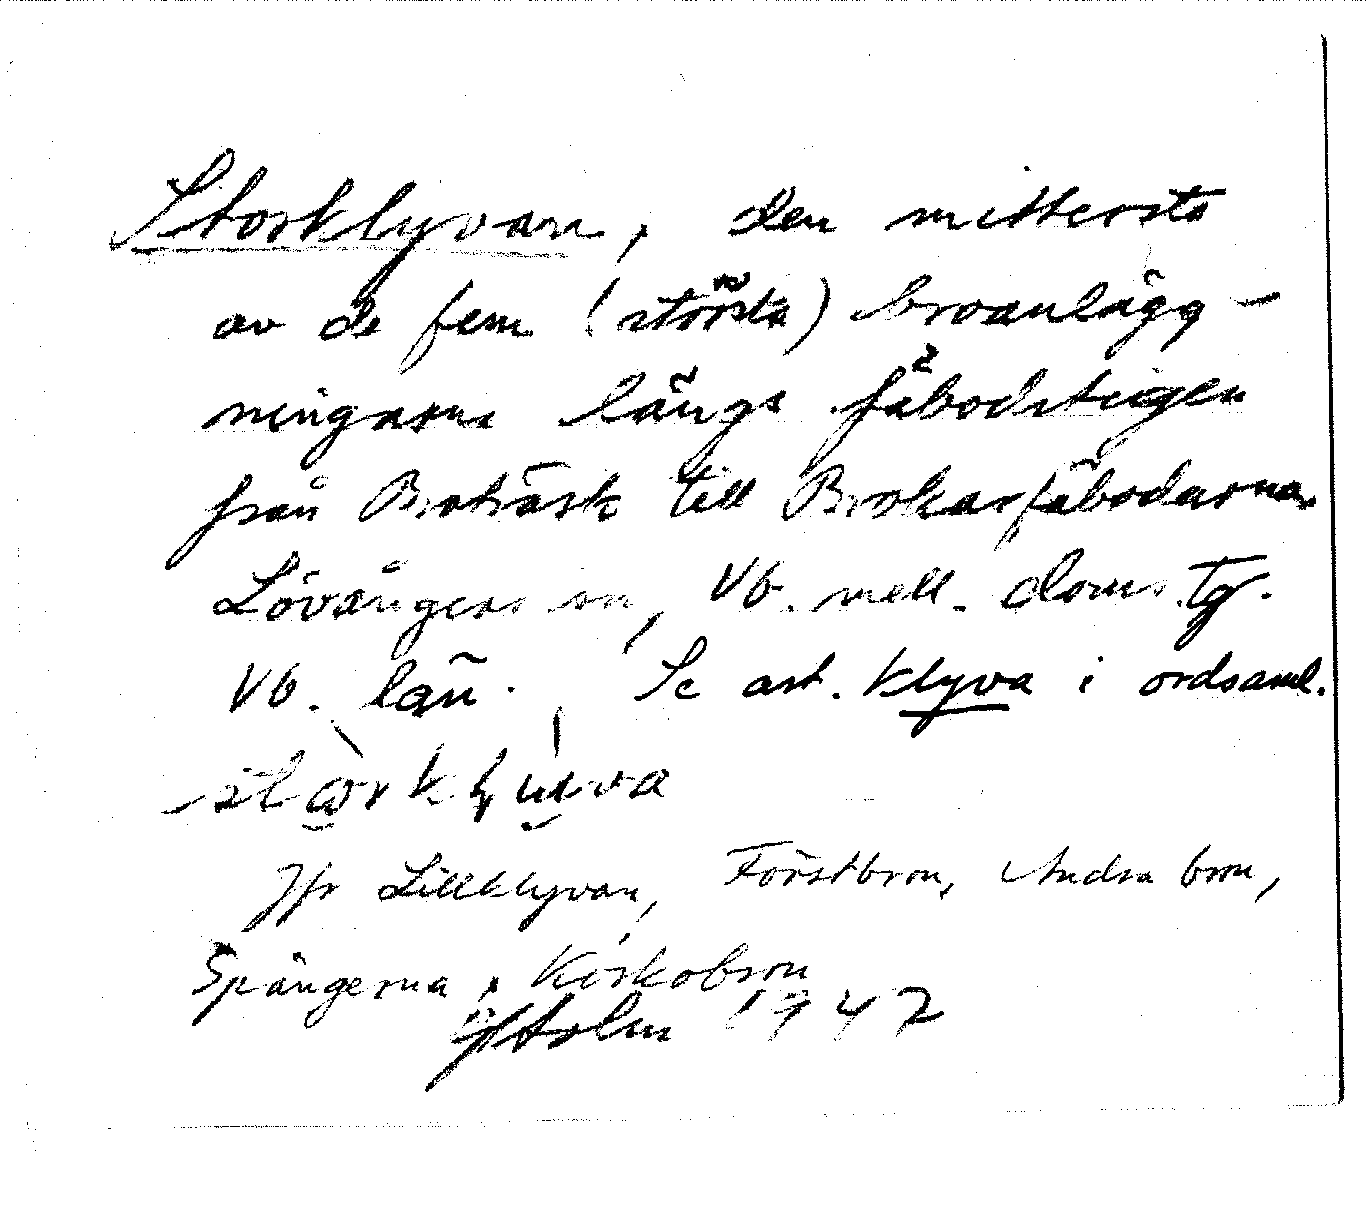 Storklyvan, den mittersta
av de fem (största) broanlägg-
ningarna längs fäbodstigen
från Broträsk till Brokarfäbodarna.
Lövångers sn, Vb. mell. doms.tg.
Vb. län. Se art. klyva i ordsaml.
Jfr Lillklyvan, Förstbron, Andra bron,
Spångerna, Kyrkobron
Holm 1947